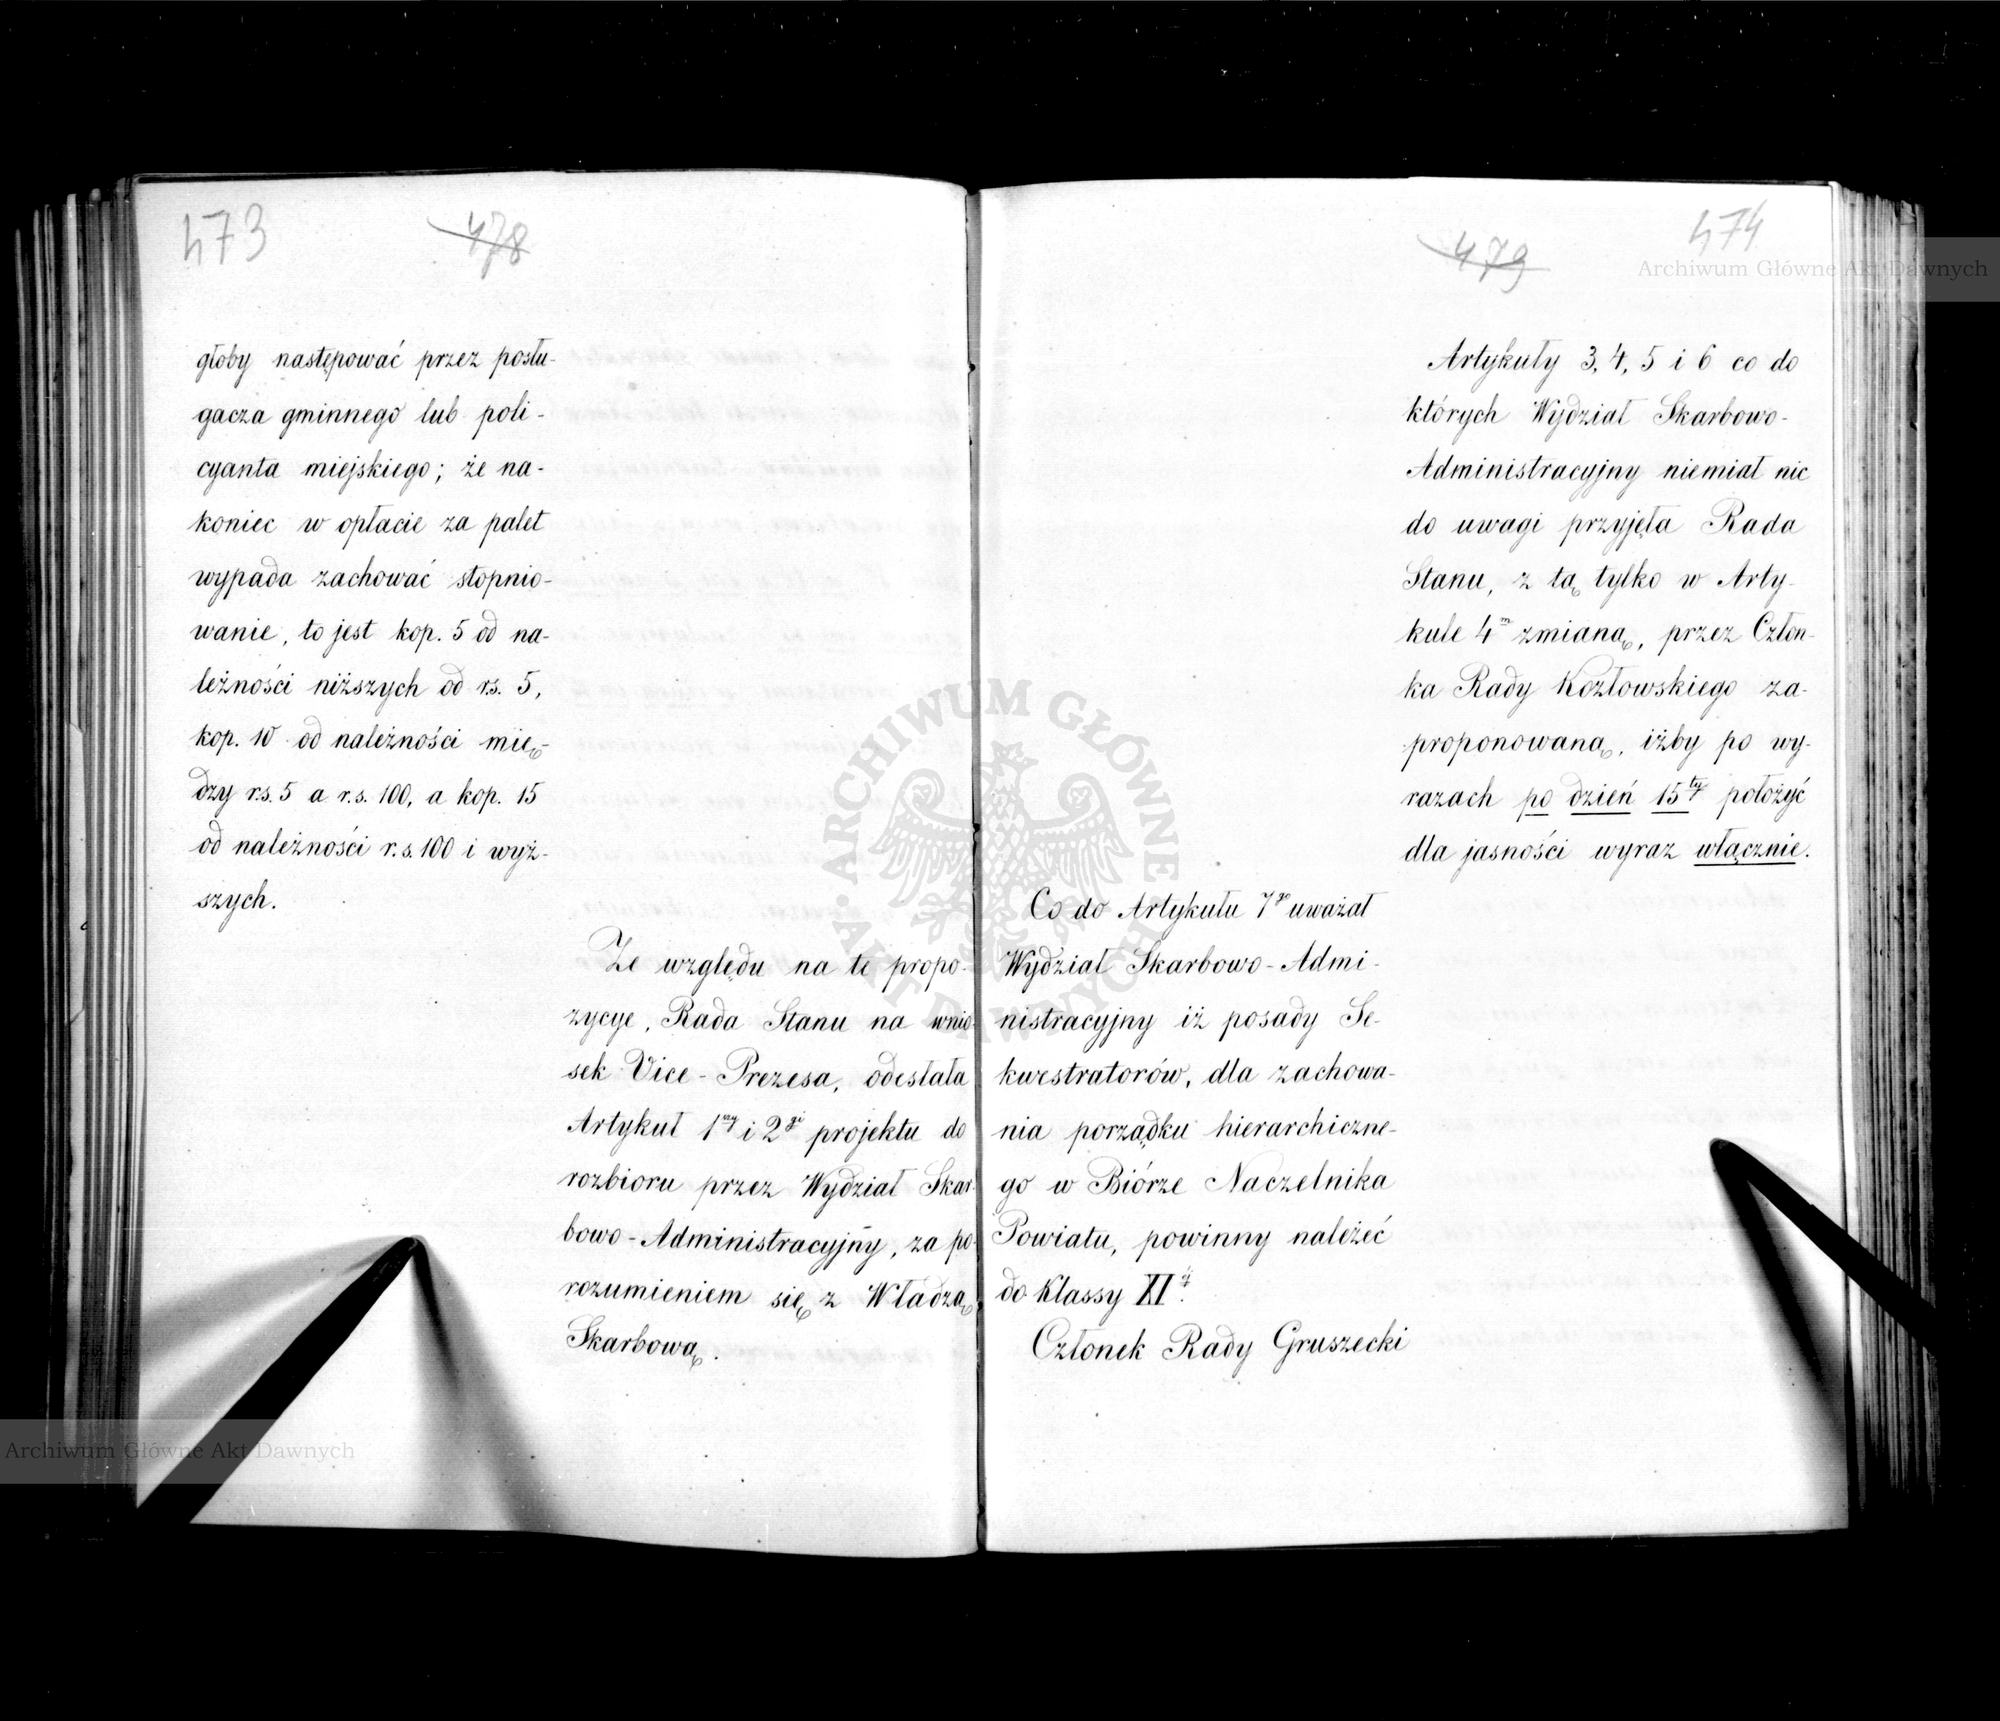 473
478
głoby następować przez posłu-
gacza gminnego lub poli-
cyanta miejskiego; że na-
koniec w opłacie za palet
wypada zachować stopnio-
wanie, to jest kop. 5 od na-
leżności niższych od rs. 5,
kop. 10 od należności mię-
dzy r.s. 5 a r.s. 100, a kop. 15
od należności r.s. 100 i wyż-
szych.
Ze względu na te propo-
zycye, Rada Stanu na wnio-
sek Vice-Prezesa, odesłała
Artykuł 1wy i 2gi projektu do
rozbioru przez Wydział Skar-
bowo-Administracyjny, za po-
rozumieniem się z Władzą
Skarbową.
474
479
Artykuły 3, 4, 5 i 6 co do
których Wydział Skarbowo-
Administracyjny niemiał nic
do uwagi przyjęła Rada
Stanu, z tą tylko w Arty-
kule 4m zmianą, przez Człon-
ka Rady Kozłowskiego za-
proponowaną, iżby po wy-
razach po dzień 15ty położyć
dla jasności wyraz włącznie.
Co do Artykułu 7go uważał
Wydział Skarbowo-Admi-
nistracyjny iż posady Se-
kwestratorów, dla zachowa-
nia porządku hierarchiczne-
go w Biórze Naczelnika
Powiatu, powinny należeć
do Klassy XIéj.
Członek Rady Gruszecki
Archiwum Główne Akt Dawnych
Archiwum Główne Akt Dawnych
ARCHIWUM GŁÓWNE AKT DAWNYCH